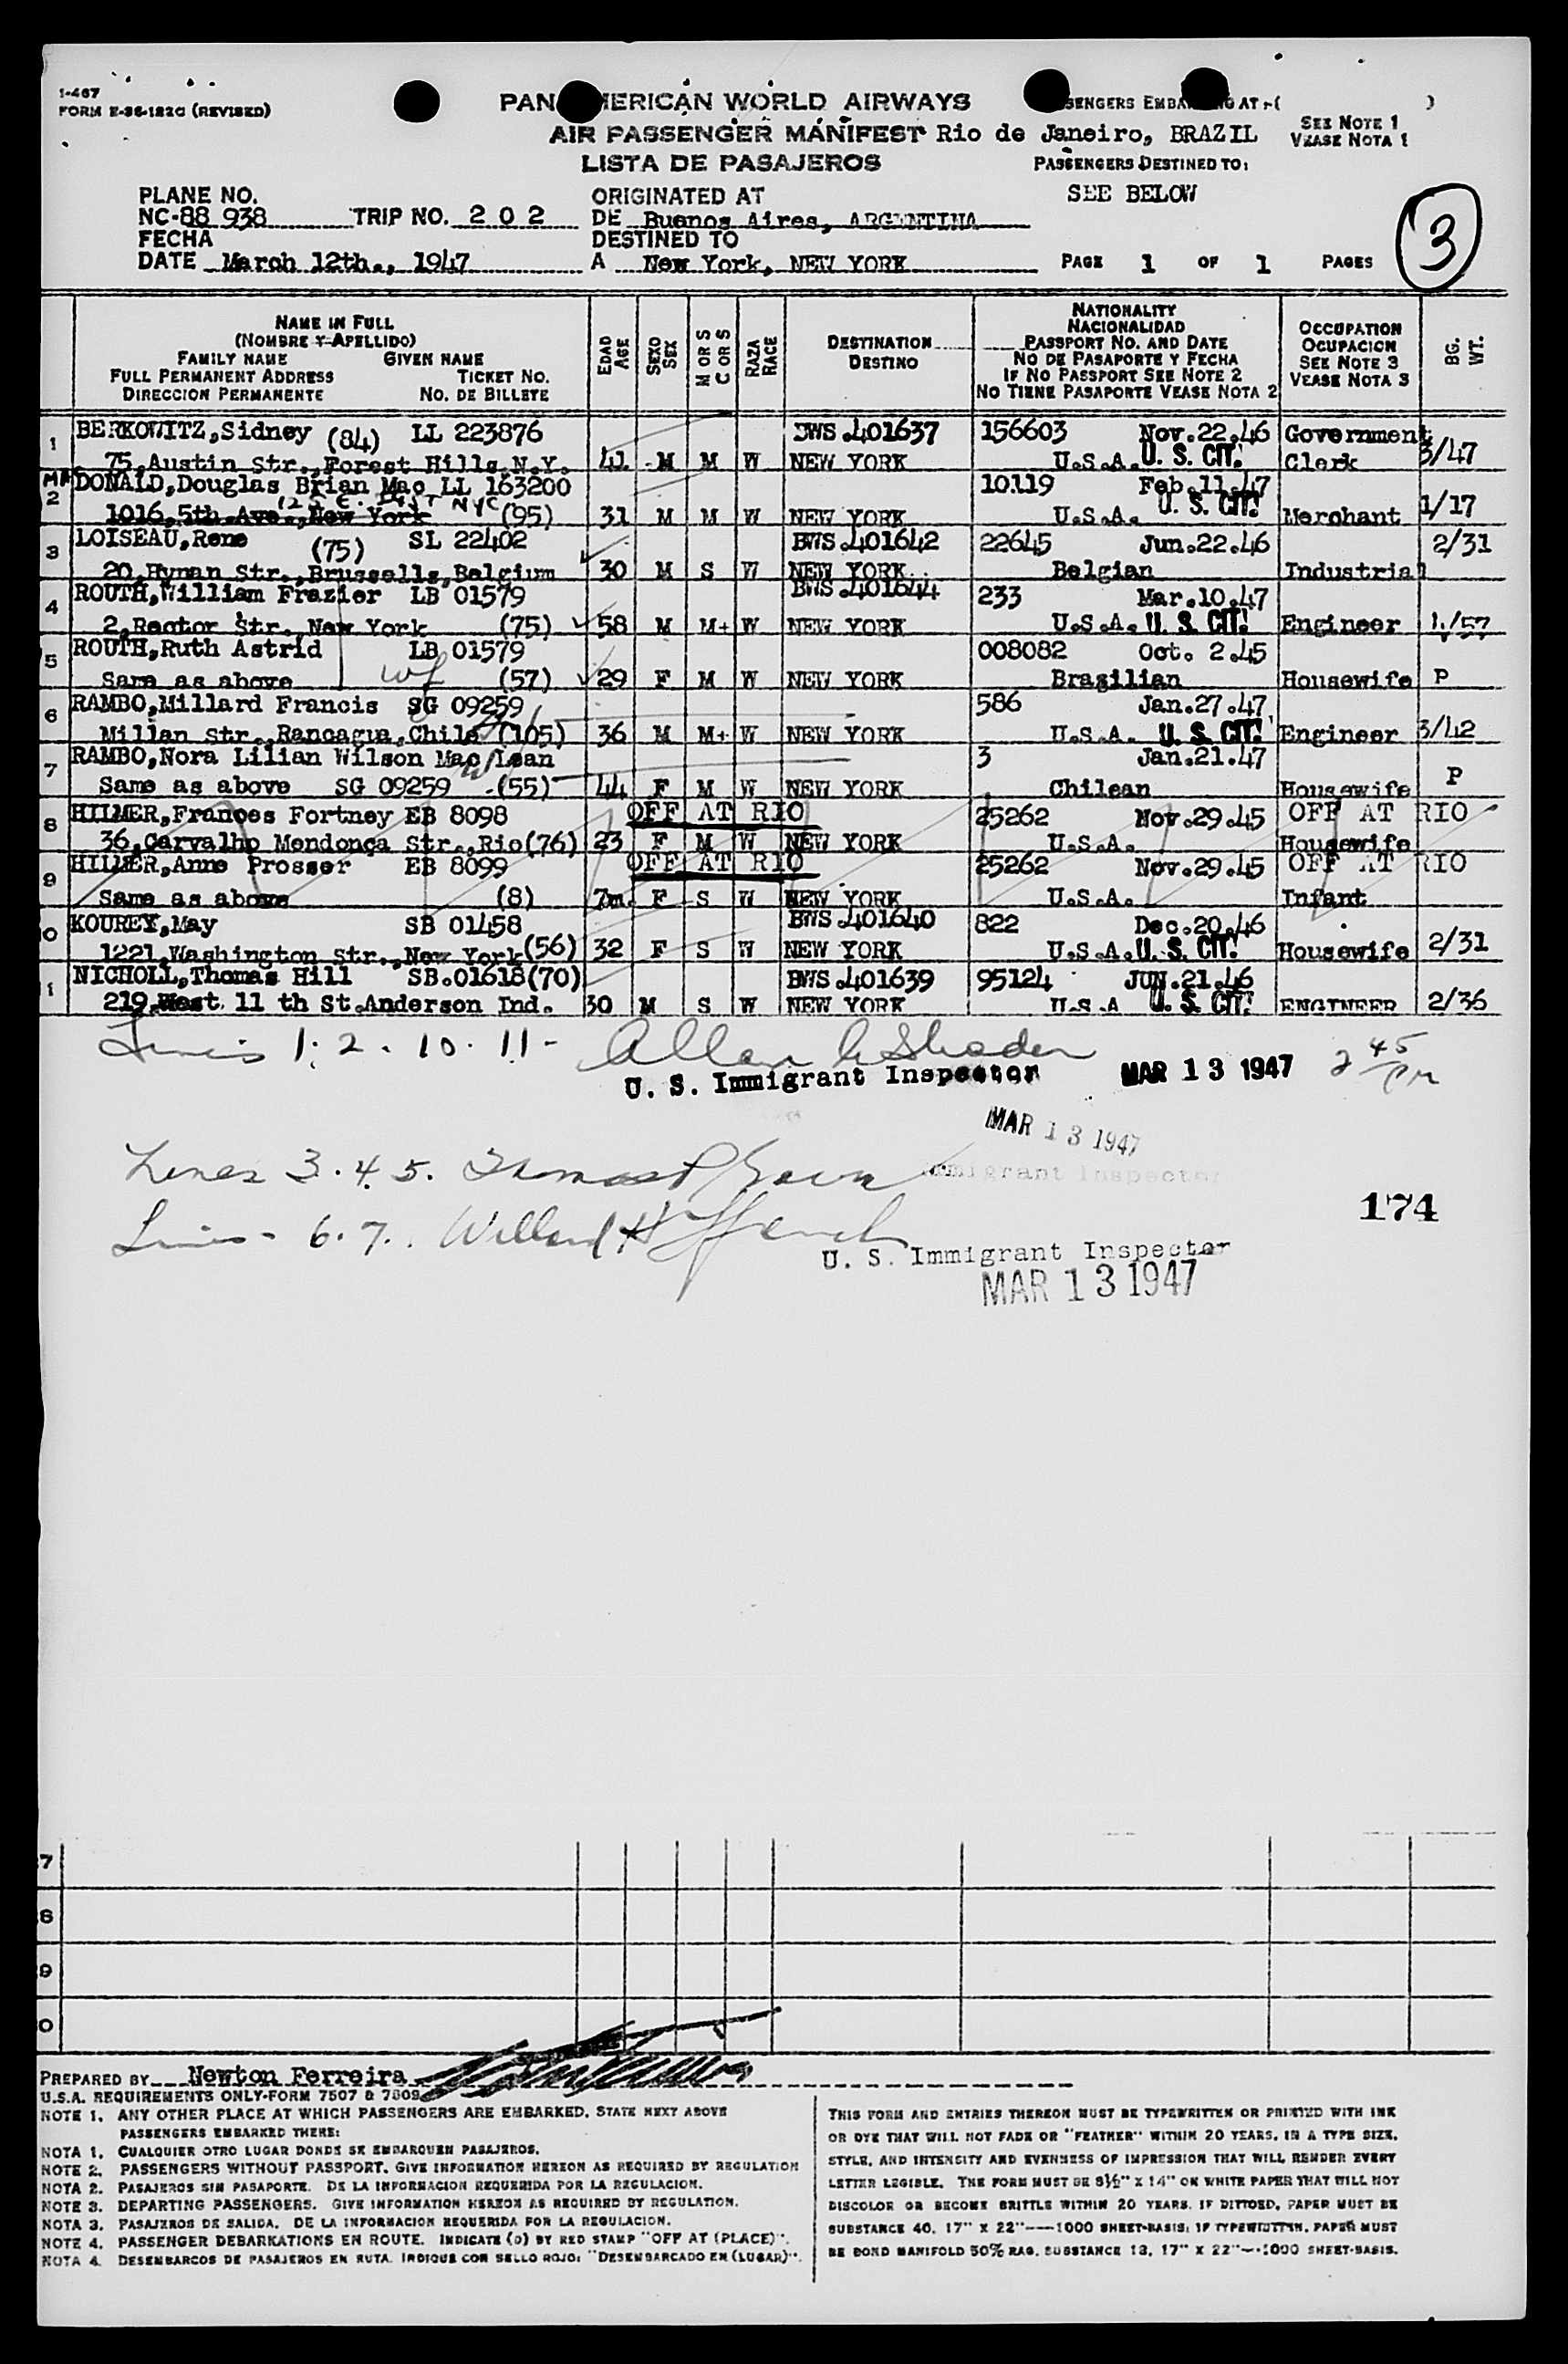 I-467
FORM E-36-122G (REVISED)
PAN AMERICAN WORLD AIRWAYS
AIR PASSENGER MANIFEST
LISTA DE PASAJEROS
PASSENGERS EMBARKING AT:-( )
Rio de Janeiro, BRAZIL
SEE NOTE 1
VEASE NOTA 1
PASSENGERS DESTINED TO:
SEE BELOW
PLANE NO.
NC-88 938 TRIP NO. 2 0 2
FECHA
DATE March 12th., 1947
ORIGINATED AT
DE Buenos Aires, ARGENTINA
DESTINED TO
A New York, NEW YORK
PAGE 1 OF 1 PAGES
3
NAME IN FULL
(NOMBRE Y APELLIDO)
FAMILY NAME GIVEN NAME
FULL PERMANENT ADDRESS TICKET NO.
DIRECCION PERMANENTE NO. DE BILLETE
EDAD AGE
SEXO SEX
M OR S C OR S
RAZA RACE
DESTINATION
DESTINO
NATIONALITY
NACIONALIDAD
PASSPORT NO. AND DATE
NO DE PASAPORTE Y FECHA
IF NO PASSPORT SEE NOTE 2
NO TIENE PASAPORTE VEASE NOTA 2
OCCUPATION
OCUPACION
SEE NOTE 3
VEASE NOTA 3
BG. WT.
1 BERKOWITZ,Sidney (84) LL 223876 BWS.401637 156603 Nov.22.46 Government
75,Austin Str.,Forest Hills,N.Y. 41 M M W NEW YORK U.S.A. U. S. CIT. Clerk 3/47
2 DONALD,Douglas Brian Mac LL 163200 10119 Feb.11.47
1016,5th.Ave.,New York NYC (95) 31 M M W NEW YORK U.S.A. U. S. CIT. Merchant 1/17
3 LOISEAU,Rene (75) SL 22402 BWS.401642 22645 Jun.22.46 2/31
20,Hyman Str.,Brussells,Belgium 30 M S W NEW YORK Belgian Industrial
4 ROUTH,William Frazier LB 01579 BWS.401644 233 Mar.10.47
2,Rector Str.,New York (75) 58 M M+ W NEW YORK U.S.A. U. S. CIT. Engineer 4/57
5 ROUTH,Ruth Astrid LB 01579 008082 Oct. 2.45
Same as above wf (57) 29 F M W NEW YORK Brasilian Housewife P
6 RAMBO,Millard Francis SG 09259 586 Jan.27.47
Millan str.,Rancagua,Chile (105) 36 M M+ W NEW YORK U.S.A. U. S. CIT. Engineer 3/42
7 RAMBO,Nora Lilian Wilson Mac Lean 3 Jan.21.47
Same as above SG 09259 (55) 44 F M W NEW YORK Chilean Housewife P
8 HILMER,Frances Fortney EB 8098 OFF AT RIO 25262 Nov.29.45 OFF AT RIO
36,Carvalho Mendonça Str.,Rio(76) 23 F M W NEW YORK U.S.A. Housewife
9 HILMER,Anne Prosser EB 8099 OFF AT RIO 25262 Nov.29.45 OFF AT RIO
Same as above (8) 7m. F S W NEW YORK U.S.A. Infant
0 KOUREY,May SB 01458 BWS.401640 822 Dec.20.46
1221,Washington Str.,New York(56) 32 F S W NEW YORK U.S.A. U. S. CIT. Housewife 2/31
1 NICHOLL,Thomas Hill SB.01618(70) BWS.401639 95124 JUN.21.46
219,West. 11 th St.Anderson Ind. 30 M S W NEW YORK U.S.A U. S. CIT. ENGINEER 2/36
Lines 1. 2. 10. 11-
U. S. Immigrant Inspector MAR 13 1947 2 45 PM
MAR 13 1947
Lines 3. 4. 5. Thomas P
Immigrant Inspector
174
Lines - 6. 7. Willard H French
U. S. Immigrant Inspector
MAR 13 1947
7
8
9
0
PREPARED BY Newton Ferreira
U.S.A. REQUIREMENTS ONLY-FORM 7507 & 7509
NOTE 1. ANY OTHER PLACE AT WHICH PASSENGERS ARE EMBARKED, STATE NEXT ABOVE
PASSENGERS EMBARKED THERE:
NOTA 1. CUALQUIER OTRO LUGAR DONDE SE EMBARQUEN PASAJEROS.
NOTE 2. PASSENGERS WITHOUT PASSPORT. GIVE INFORMATION HEREON AS REQUIRED BY REGULATION
NOTA 2. PASAJEROS SIN PASAPORTE. DE LA INFORMACION REQUERIDA POR LA REGULACION.
NOTE 3. DEPARTING PASSENGERS. GIVE INFORMATION HEREON AS REQUIRED BY REGULATION.
NOTA 3. PASAJEROS DE SALIDA. DE LA INFORMACION REQUERIDA FOR LA REGULACION.
NOTE 4. PASSENGER DEBARKATIONS EN ROUTE. INDICATE (O) BY RED STAMP "OFF AT (PLACE)".
NOTA 4. DESEMBARCOS DE PASAJEROS EN RUTA. INDIQUE CON SELLO ROJO: "DESEMBARCADO EN (LUGAR)".
THIS FORM AND ENTRIES THEREON MUST BE TYPEWRITTEN OR PRINTED WITH INK
OR DYE THAT WILL NOT FADE OR "FEATHER" WITHIN 20 YEARS, IN A TYPE SIZE,
STYLE, AND INTENSITY AND EVENNESS OF IMPRESSION THAT WILL RENDER EVERY
LETTER LEGIBLE. THE FORM MUST BE 8½" X 14" ON WHITE PAPER THAT WILL NOT
DISCOLOR OR BECOME BRITTLE WITHIN 20 YEARS. IF DITTOED, PAPER MUST BE
SUBSTANCE 40, 17" X 22"---1000 SHEET-BASIS; IF TYPEWRITTEN, PAPER MUST
BE BOND MANIFOLD 50% RAG, SUBSTANCE 13, 17" X 22"--1000 SHEET-BASIS.